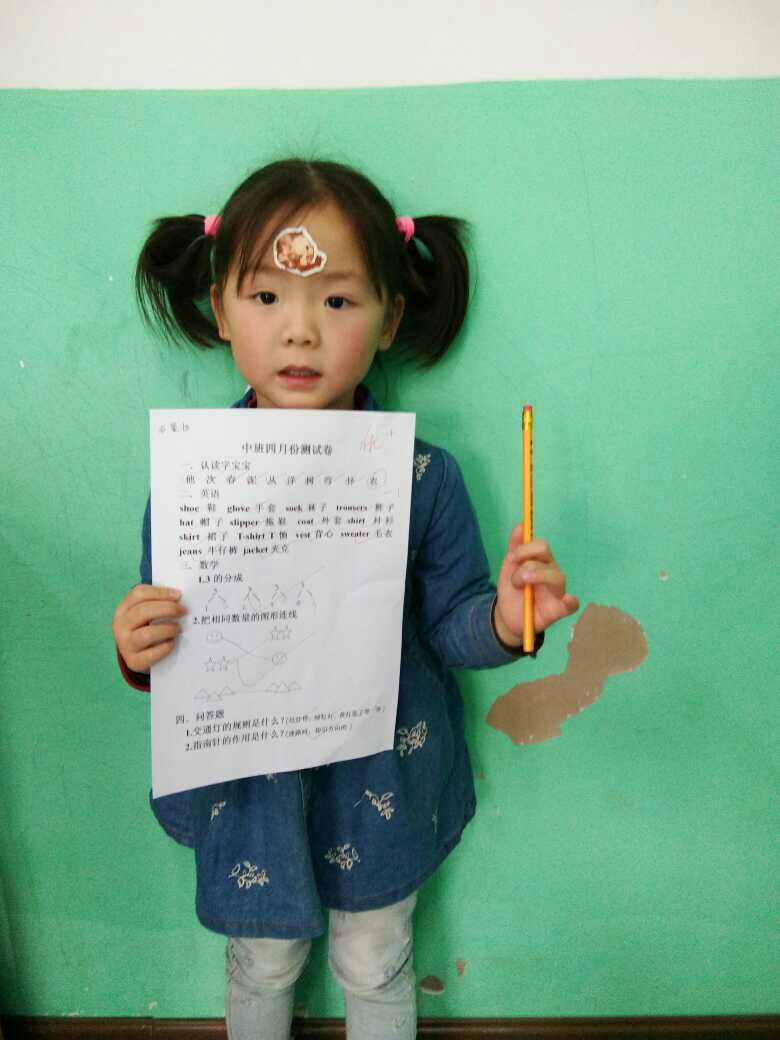 优+
中班四月份测试卷
一、认读字宝宝
他 次 春 泥 丛 洋 树 弯 抹 衣
二、英语
shoe 鞋 glove 手套 sock 袜子 trousers 裤子
hat 帽子 slipper 拖鞋 coat 外套 shirt 衬衫
skirt 裙子 T-shirt T恤 vest 背心 sweater 毛衣
jeans 牛仔裤 jacket 夹克
三、数学
1.3的分成
2.把相同数量的图形连线
四、问答题
1.交通灯的规则是什么？(红灯停，绿灯行，黄灯亮了等一等)
2.指南针的作用是什么？(迷路时，指引方向的)